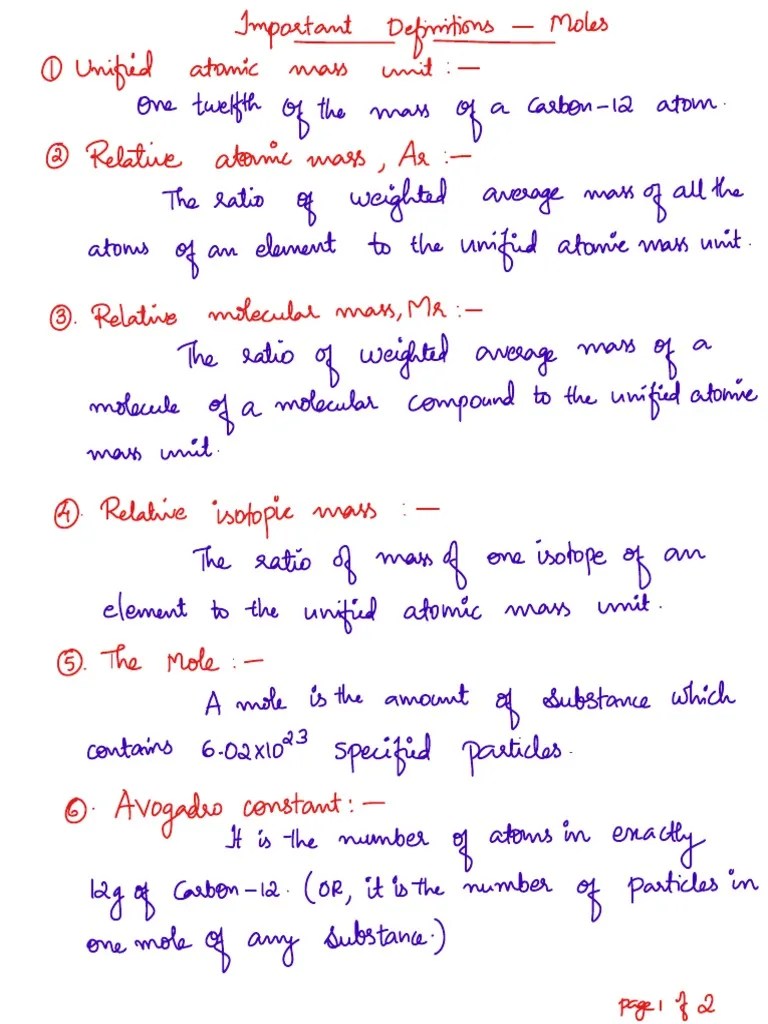 Important Definitions – Moles
① Unified atomic mass unit :–
One twelfth of the mass of a Carbon-12 atom.
② Relative atomic mass, Ar :–
The ratio of weighted average mass of all the
atoms of an element to the unified atomic mass unit.
③. Relative molecular mass, Mr :–
The ratio of weighted average mass of a
molecule of a molecular compound to the unified atomic
mass unit.
④. Relative isotopic mass :–
The ratio of mass of one isotope of an
element to the unified atomic mass unit.
⑤. The Mole :–
A mole is the amount of substance which
contains 6.02×10²³ specified particles.
⑥. Avogadro constant :–
It is the number of atoms in exactly
12g of Carbon-12. (OR, it is the number of particles in
one mole of any substance.)
page 1 of 2